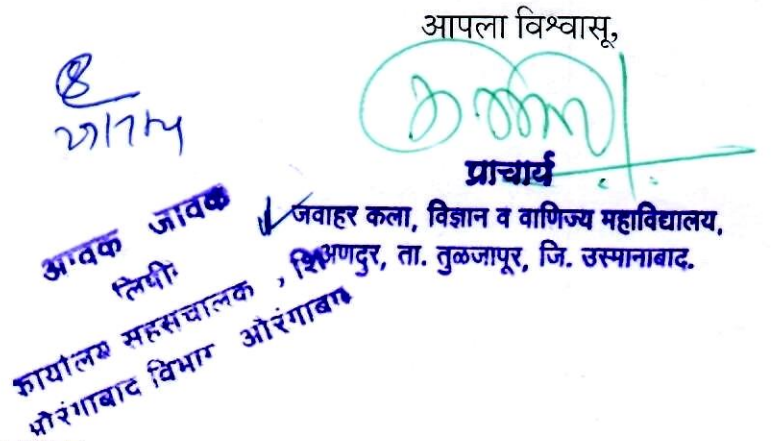 आपला विश्वासू,
प्राचार्य
जवाहर कला, विज्ञान व वाणिज्य महाविद्यालय,
अणदुर, ता. तुळजापूर, जि. उस्मानाबाद.
आवक जावक
लिपीक
कार्यालय सहसंचालक , शि
औरंगाबाद विभाग औरंगाबाद